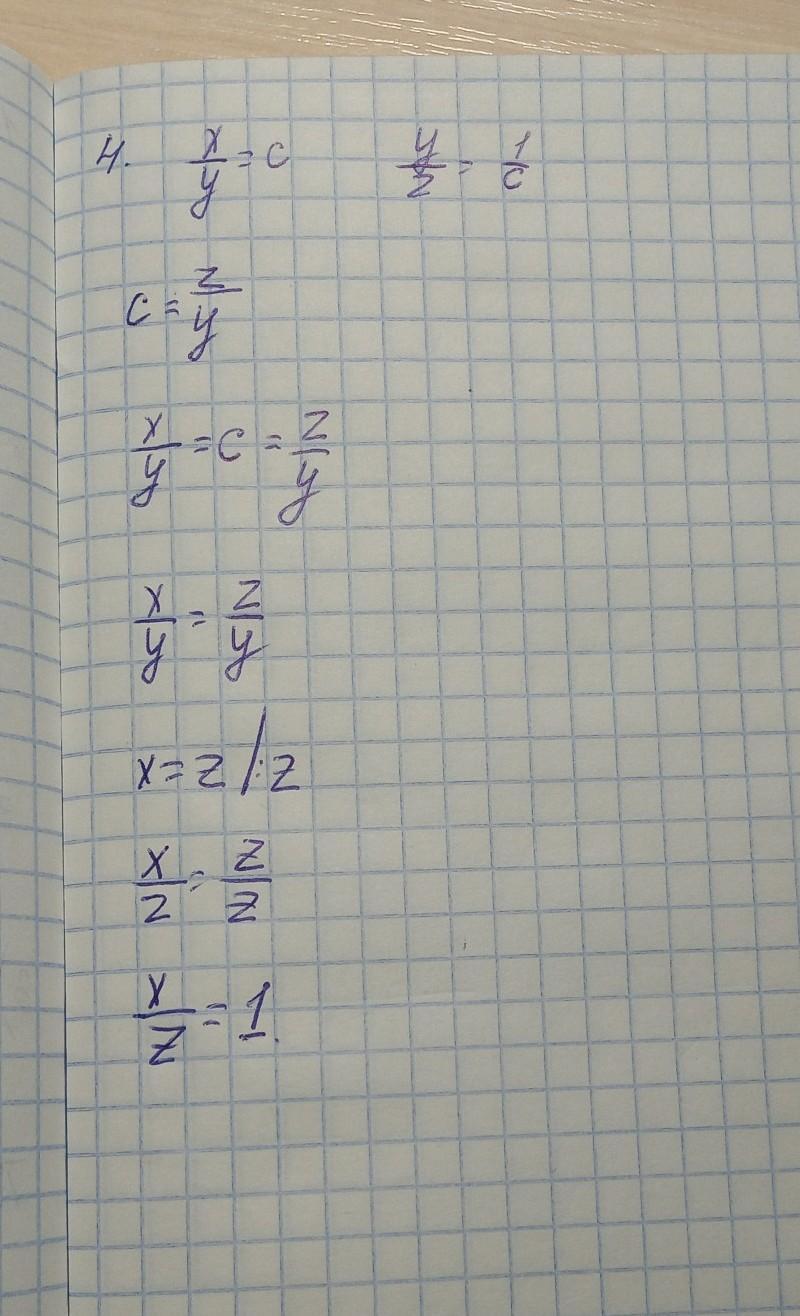 4. x/y = c y/z = 1/c
c = z/y
x/y = c = z/y
x/y = z/y
x = z /:z
x/z = z/z
x/z = 1.